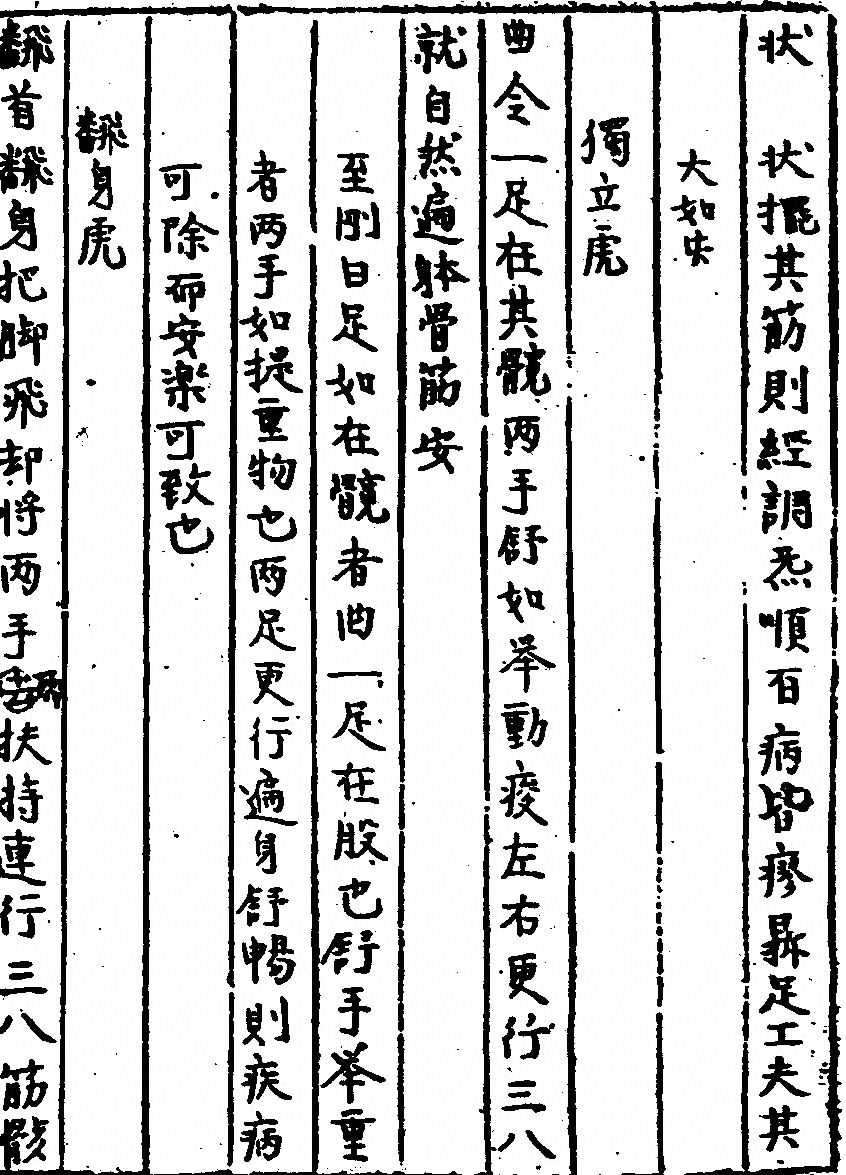 状　状擺其筋則經調炁順百病皆瘳鼎足工夫其
大如此
獨立虎
曲令一足在其髖两手舒如举動痠左右更行三八
就自然遍躰骨筋安
至剛曰足如在髖者曲一足在股也舒手举重
者两手如提重物也两足更行遍身舒暢則疾病
可除而安楽可致也
飜身虎
飜首飜身把脚飛却将两手扶持連行三八筋骸